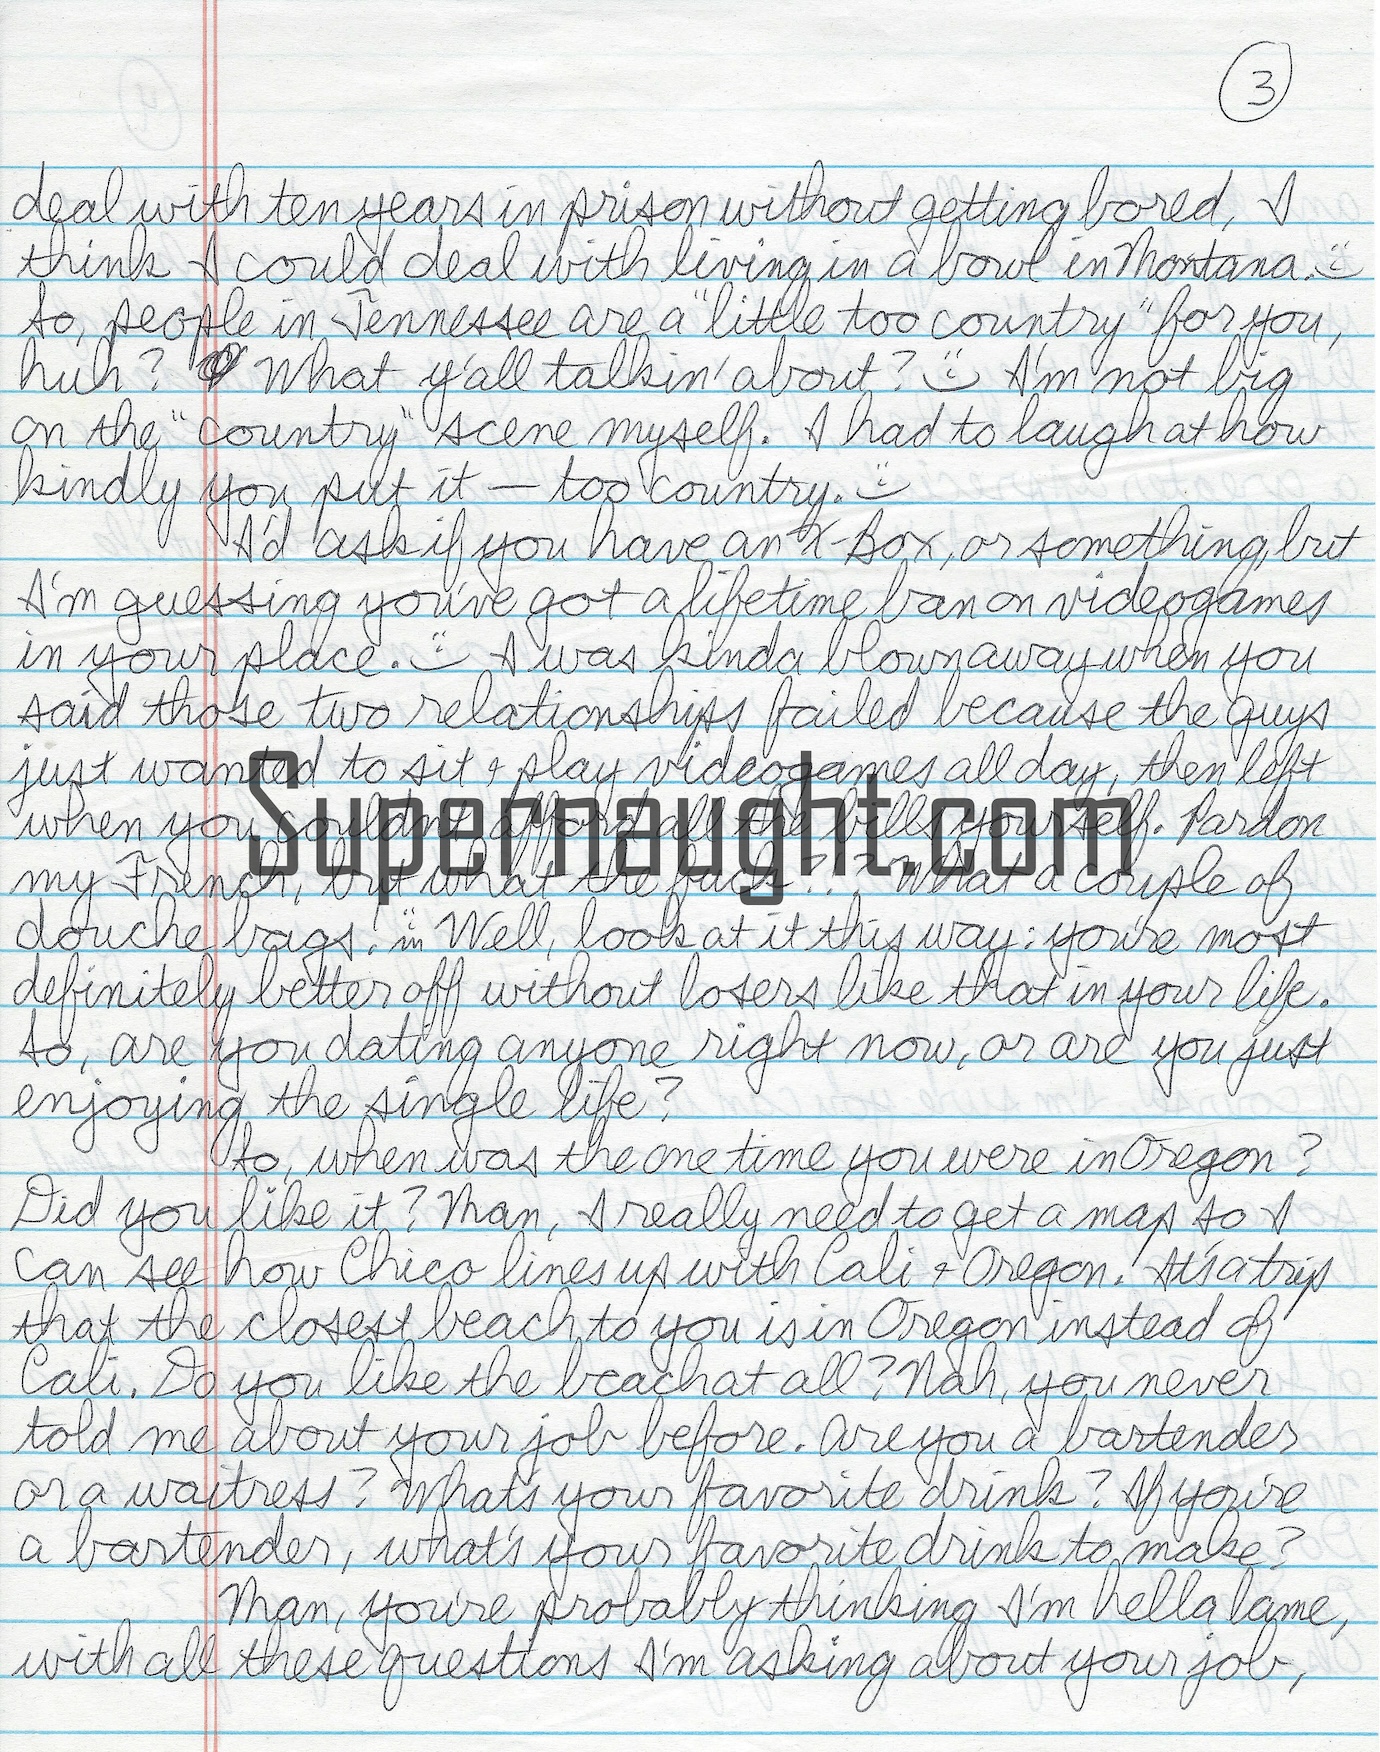 3
deal with ten years in prison without getting bored, I
think I could deal with living in a bowl in Montana. :)
So, people in Tennessee are a "little too country" for you,
huh? What y'all talkin' about? :) I'm not big
on the "country" scene myself. I had to laugh at how
kindly you put it — too country. :)
I'd ask if you have an X-Box, or something, but
I'm guessing you've got a lifetime ban on videogames
in your place. :) I was kinda blown away when you
said those two relationships failed because the guys
just wanted to sit & play videogames all day, then left
when you couldn't afford all the bills yourself. Pardon
Supernaught.com
my French, but what the fuck?!? What a couple of
douche bags! :) Well, look at it this way: you're most
definitely better off without losers like that in your life.
So, are you dating anyone right now, or are you just
enjoying the single life?
So, when was the one time you were in Oregon?
Did you like it? Man, I really need to get a map so I
can see how Chico lines up with Cali & Oregon! It's a trip
that the closest beach to you is in Oregon instead of
Cali. Do you like the beach at all? Nah, you never
told me about your job before. Are you a bartender
or a waitress? What's your favorite drink? If you're
a bartender, what's your favorite drink to make?
Man, you're probably thinking I'm hella lame,
with all these questions I'm asking about your job,